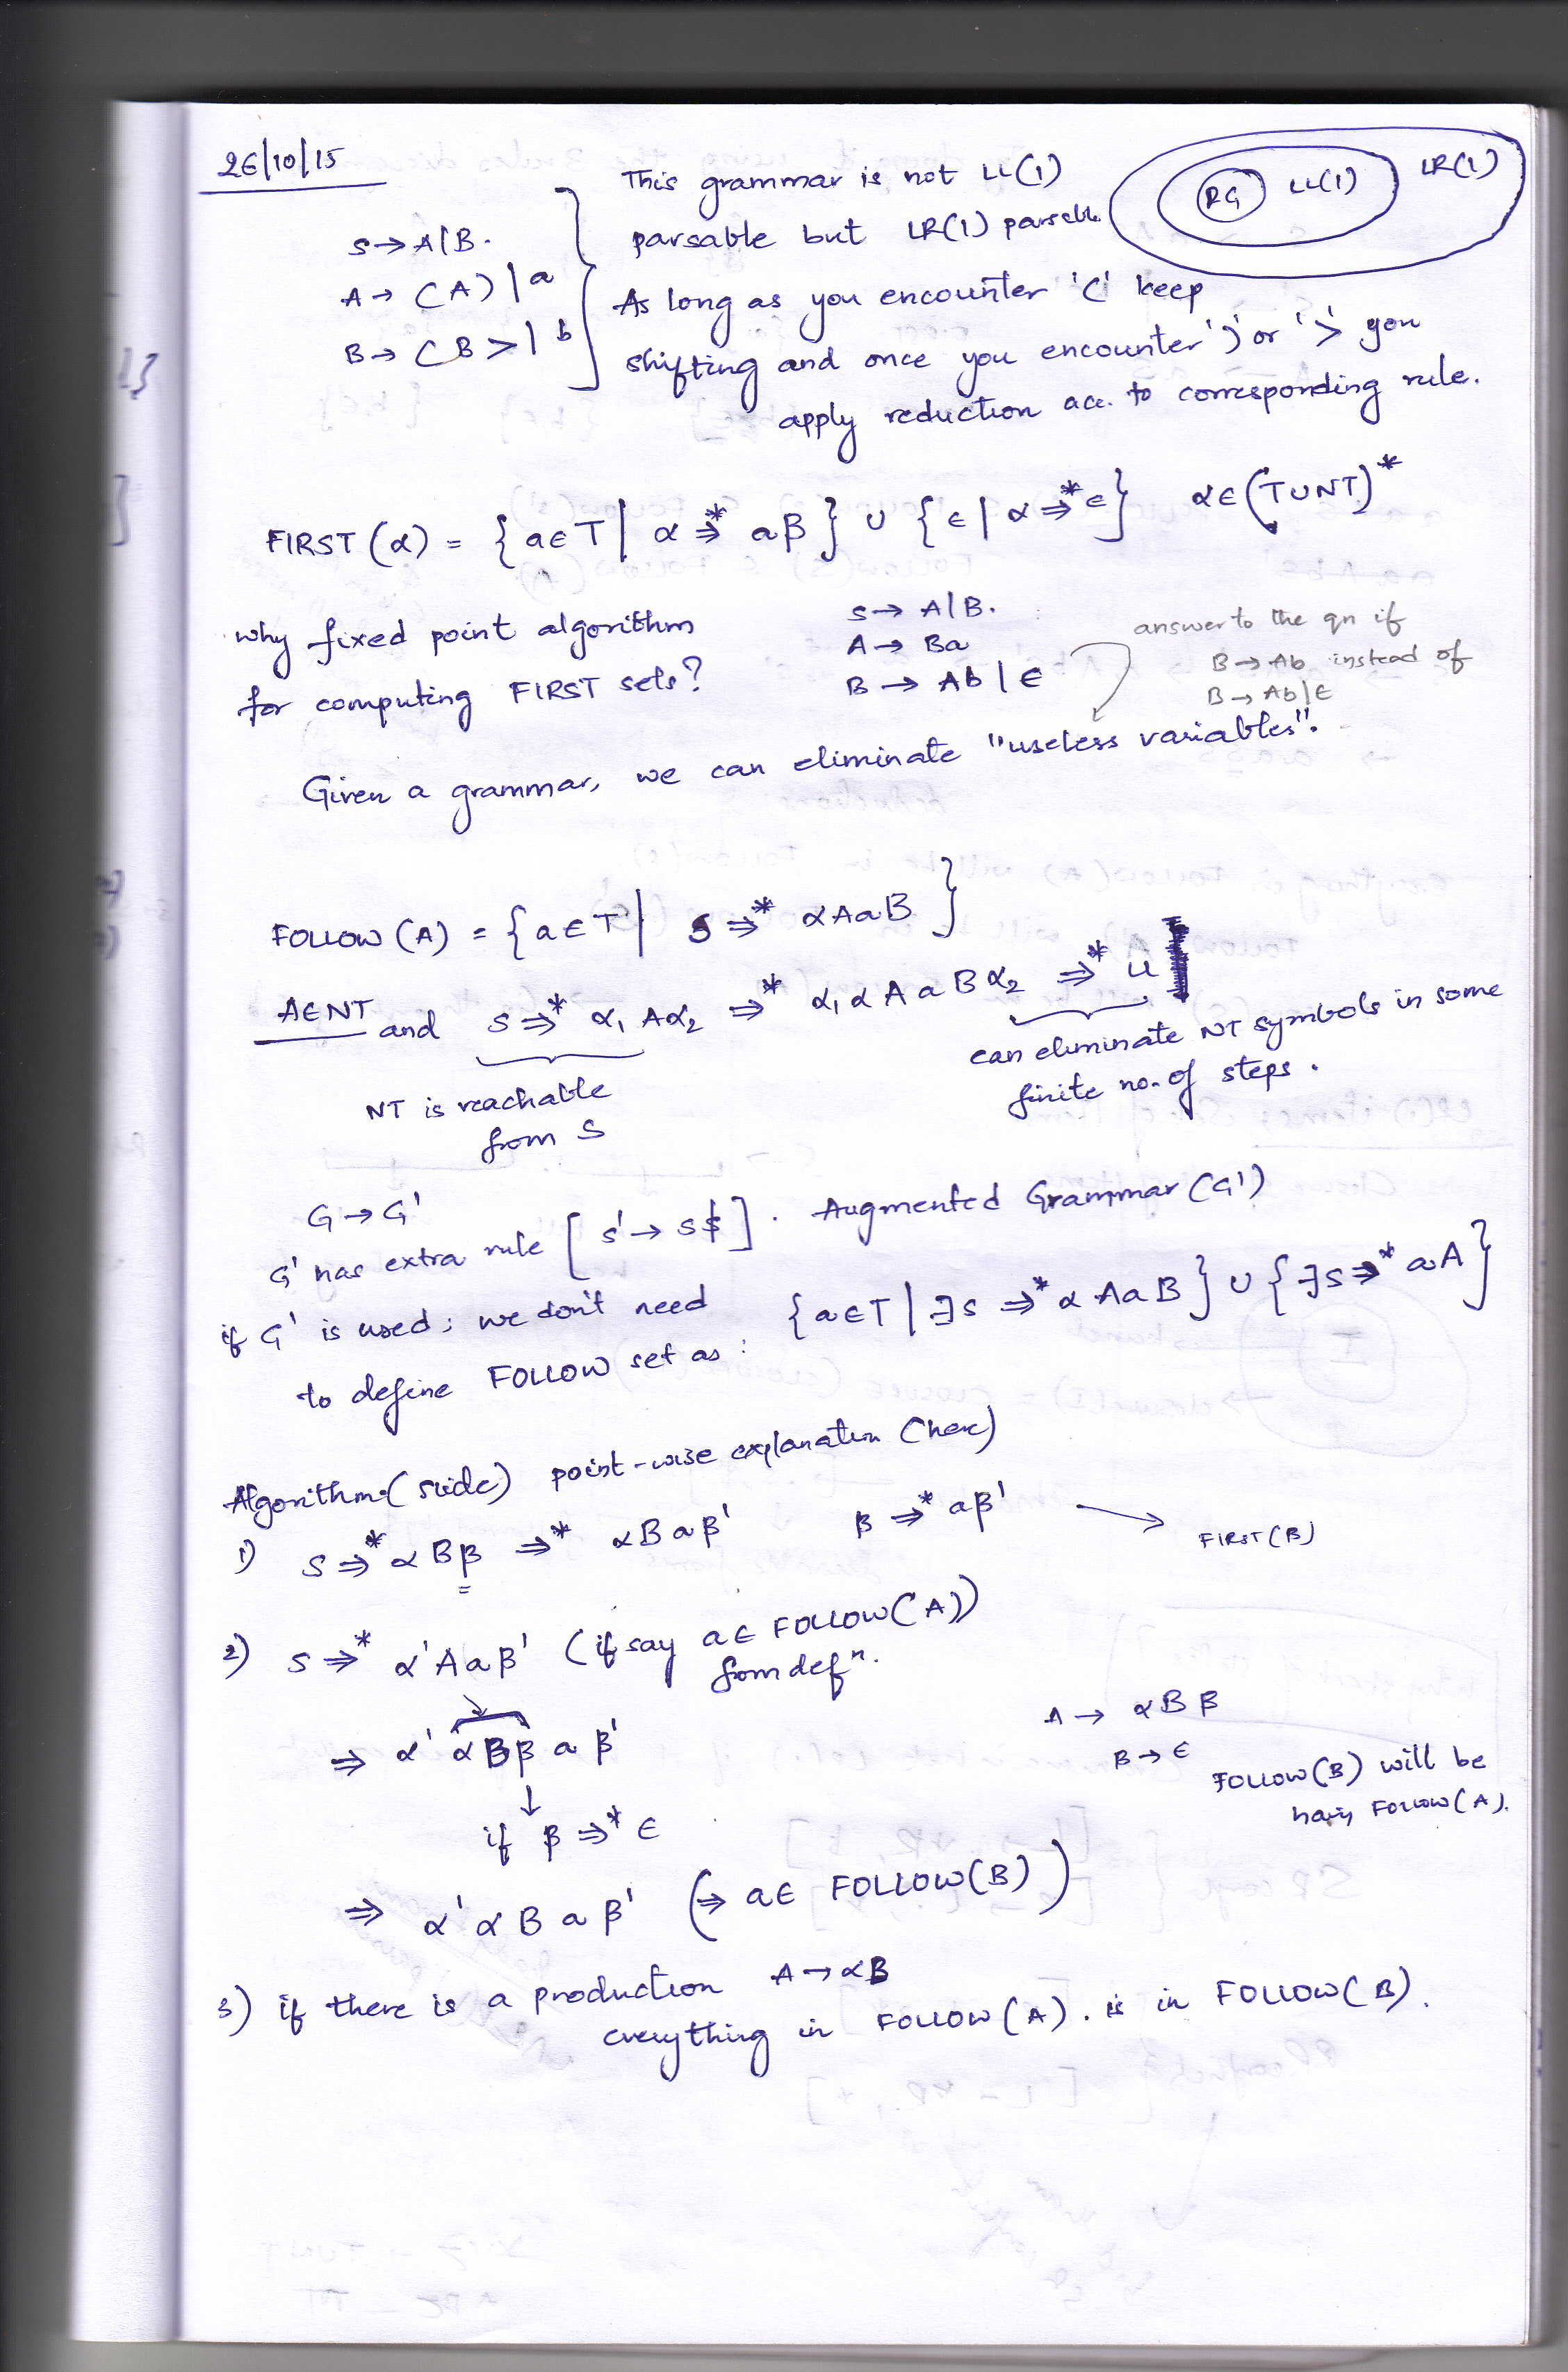 26/10/15
S → A|B.
A → (A) | a
B → (B > | b
This grammar is not LL(1)
parsable but LR(1) parsable
As long as you encounter '(' keep
shifting and once you encounter ')' or '>' you
apply reduction acc. to corresponding rule.
RG LL(1) LR(1)
FIRST (α) = { a ∈ T | α ⇒* aβ } ∪ { ϵ | α ⇒* ϵ } α ∈ (T ∪ NT)*
why fixed point algorithm
for computing FIRST sets?
S → A|B.
A → Ba
B → Ab | ϵ
answer to the qn if
B → Ab instead of
B → Ab|ϵ
Given a grammar, we can eliminate "useless variables".
FOLLOW (A) = { a ∈ T | S ⇒* αAaB }
A ∈ NT and S ⇒* α₁ Aα₂ ⇒* α₁ α A a B α₂ ⇒* u
NT is reachable
from S
can eliminate NT symbols in some
finite no. of steps.
G → G'
G' has extra rule [ S' → S$ ]. Augmented Grammar (G')
if G' is used; we don't need
to define FOLLOW set as :
{ a ∈ T | ∃ S ⇒* α AaB } ∪ { ∃ S ⇒* aA }
Algorithm (slide) point-wise explanation (here)
1) S ⇒* α Bβ ⇒* αBaβ' β ⇒* aβ' → FIRST(β)
2) S ⇒* α'Aaβ' (if say a ∈ FOLLOW(A))
from defⁿ.
⇒ α' αBβ a β'
↓
if β ⇒* ϵ
A → αBβ
β → ϵ
FOLLOW(B) will be
FOLLOW(A).
⇒ α'αBaβ' (⇒ a ∈ FOLLOW(B))
3) if there is a production A → αB
everything in FOLLOW(A). is in FOLLOW(B).